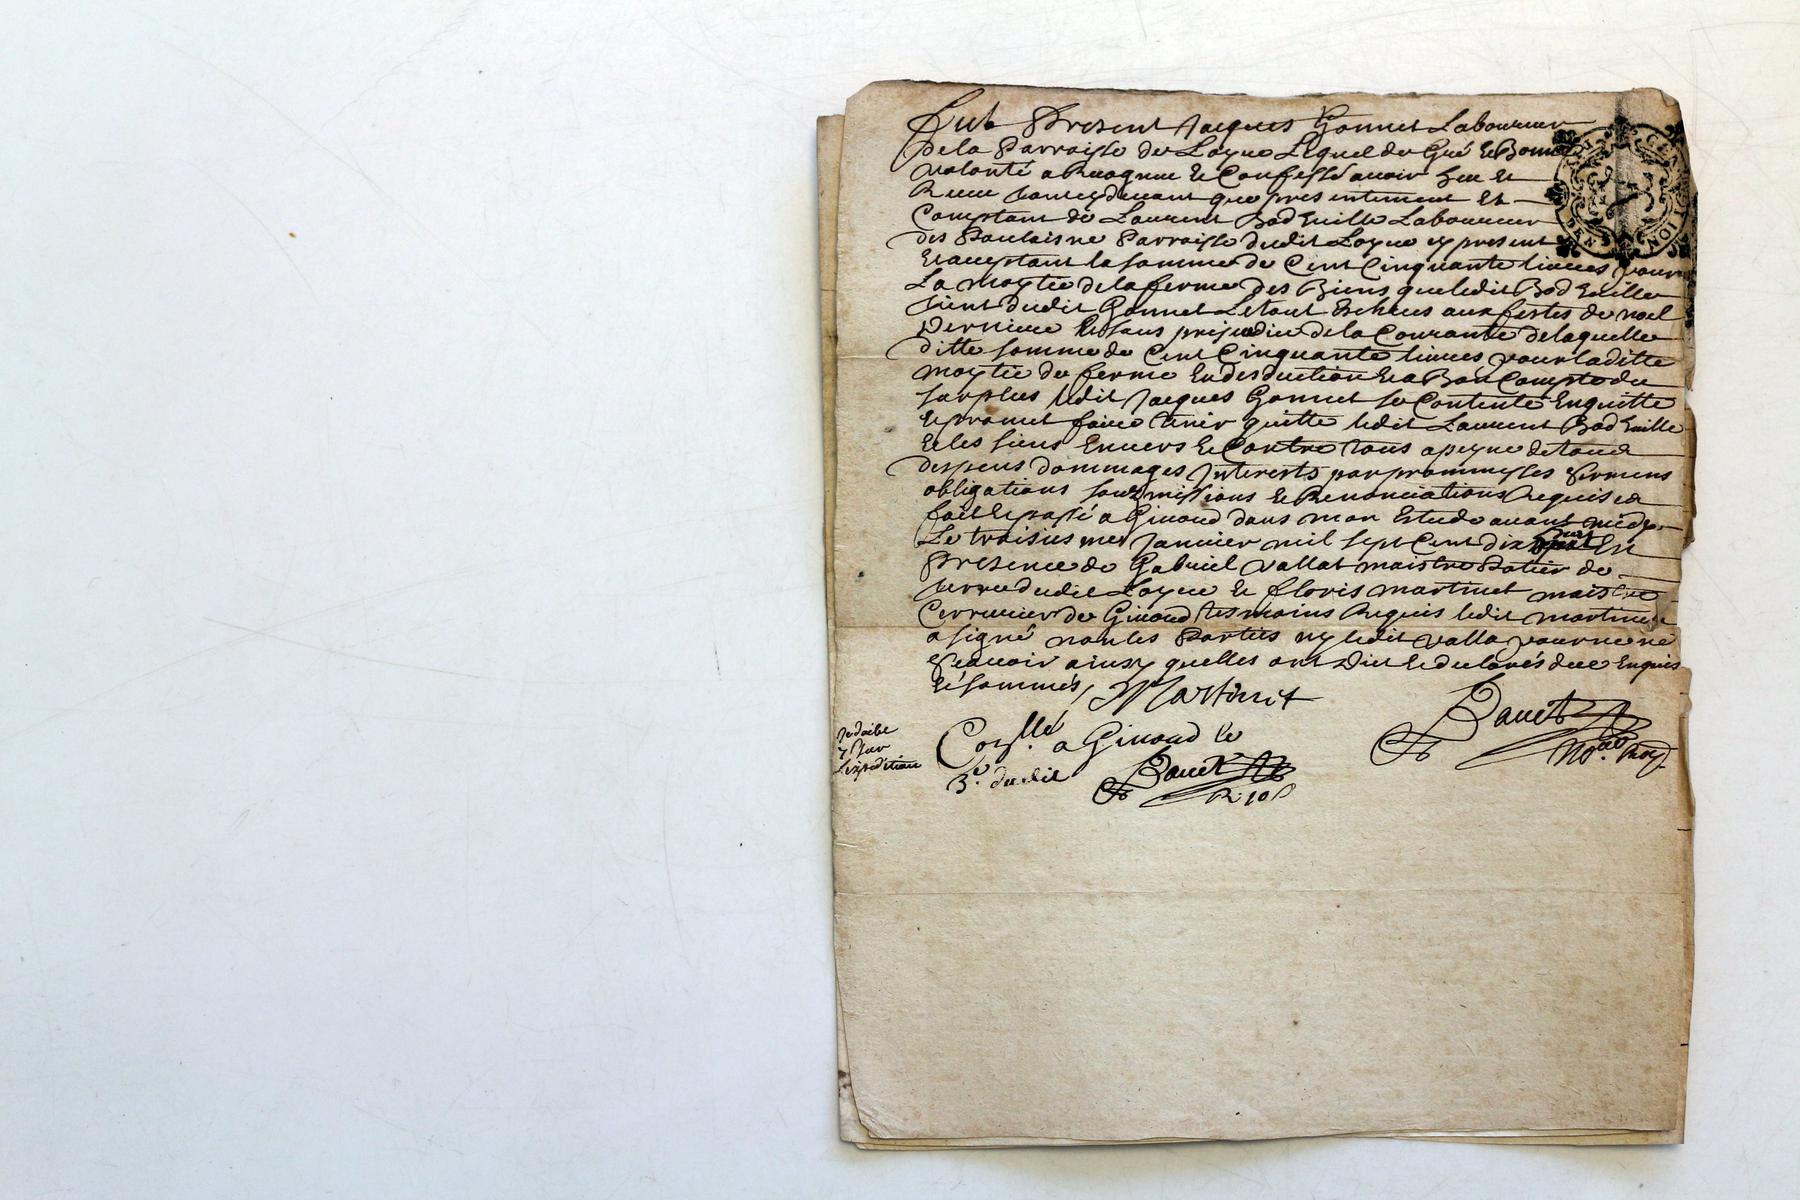 Fut Present Jacques Gonnet Laboureur
de la Parroisse de Loyue Lequel de Gré & Bonne
volonté a Recognu & Confessé auoir heu &
Receu tant cy deuant que presentement &
Comptant de Laurent Bod Euille Laboureur
des Paulaisne Parroisse dudit Loyue cy present
& acceptant la somme de Cent Cinquante liures pour
La moytié de la ferme des Biens que ledit Bod Euille
tient dudit Gonnet Le tout Escheus aux festes de noel
Derniere & sans prejudice de la Courante de laquelle
ditte somme de Cent Cinquante liures pour laditte
moytié de ferme En desduction & a Bon Compte du
surplus ledit Jacques Gonnet se Contente Enquitte
& promet faire tenir quitte ledit Laurent Bod Euille
& les siens Enuers & Contre tous a peyne de tous
despens dommages Interests par prommesses sermens
obligations soubmissions & Renonciations Requises
fait & passé a Giuord dans mon Estude auant midy
Le troisiesme Januier mil sept Cent dix En
Presence de Gabriel Vallat maistre Potier de
terre dudit Loyue & floris martinet maistre
Cerrurier de Giuord tesmoins Requis ledit martinet
a signé non les Parties ny ledit Valla pour ne
sçauoir ainsy quelles ont Dit & declarés de ce Enquis
& sommés, Martinet
Bauet
No.re Roy.
Con.llé a Giuord le
3.e dudit Bauet
R. 10 s
l'expedition